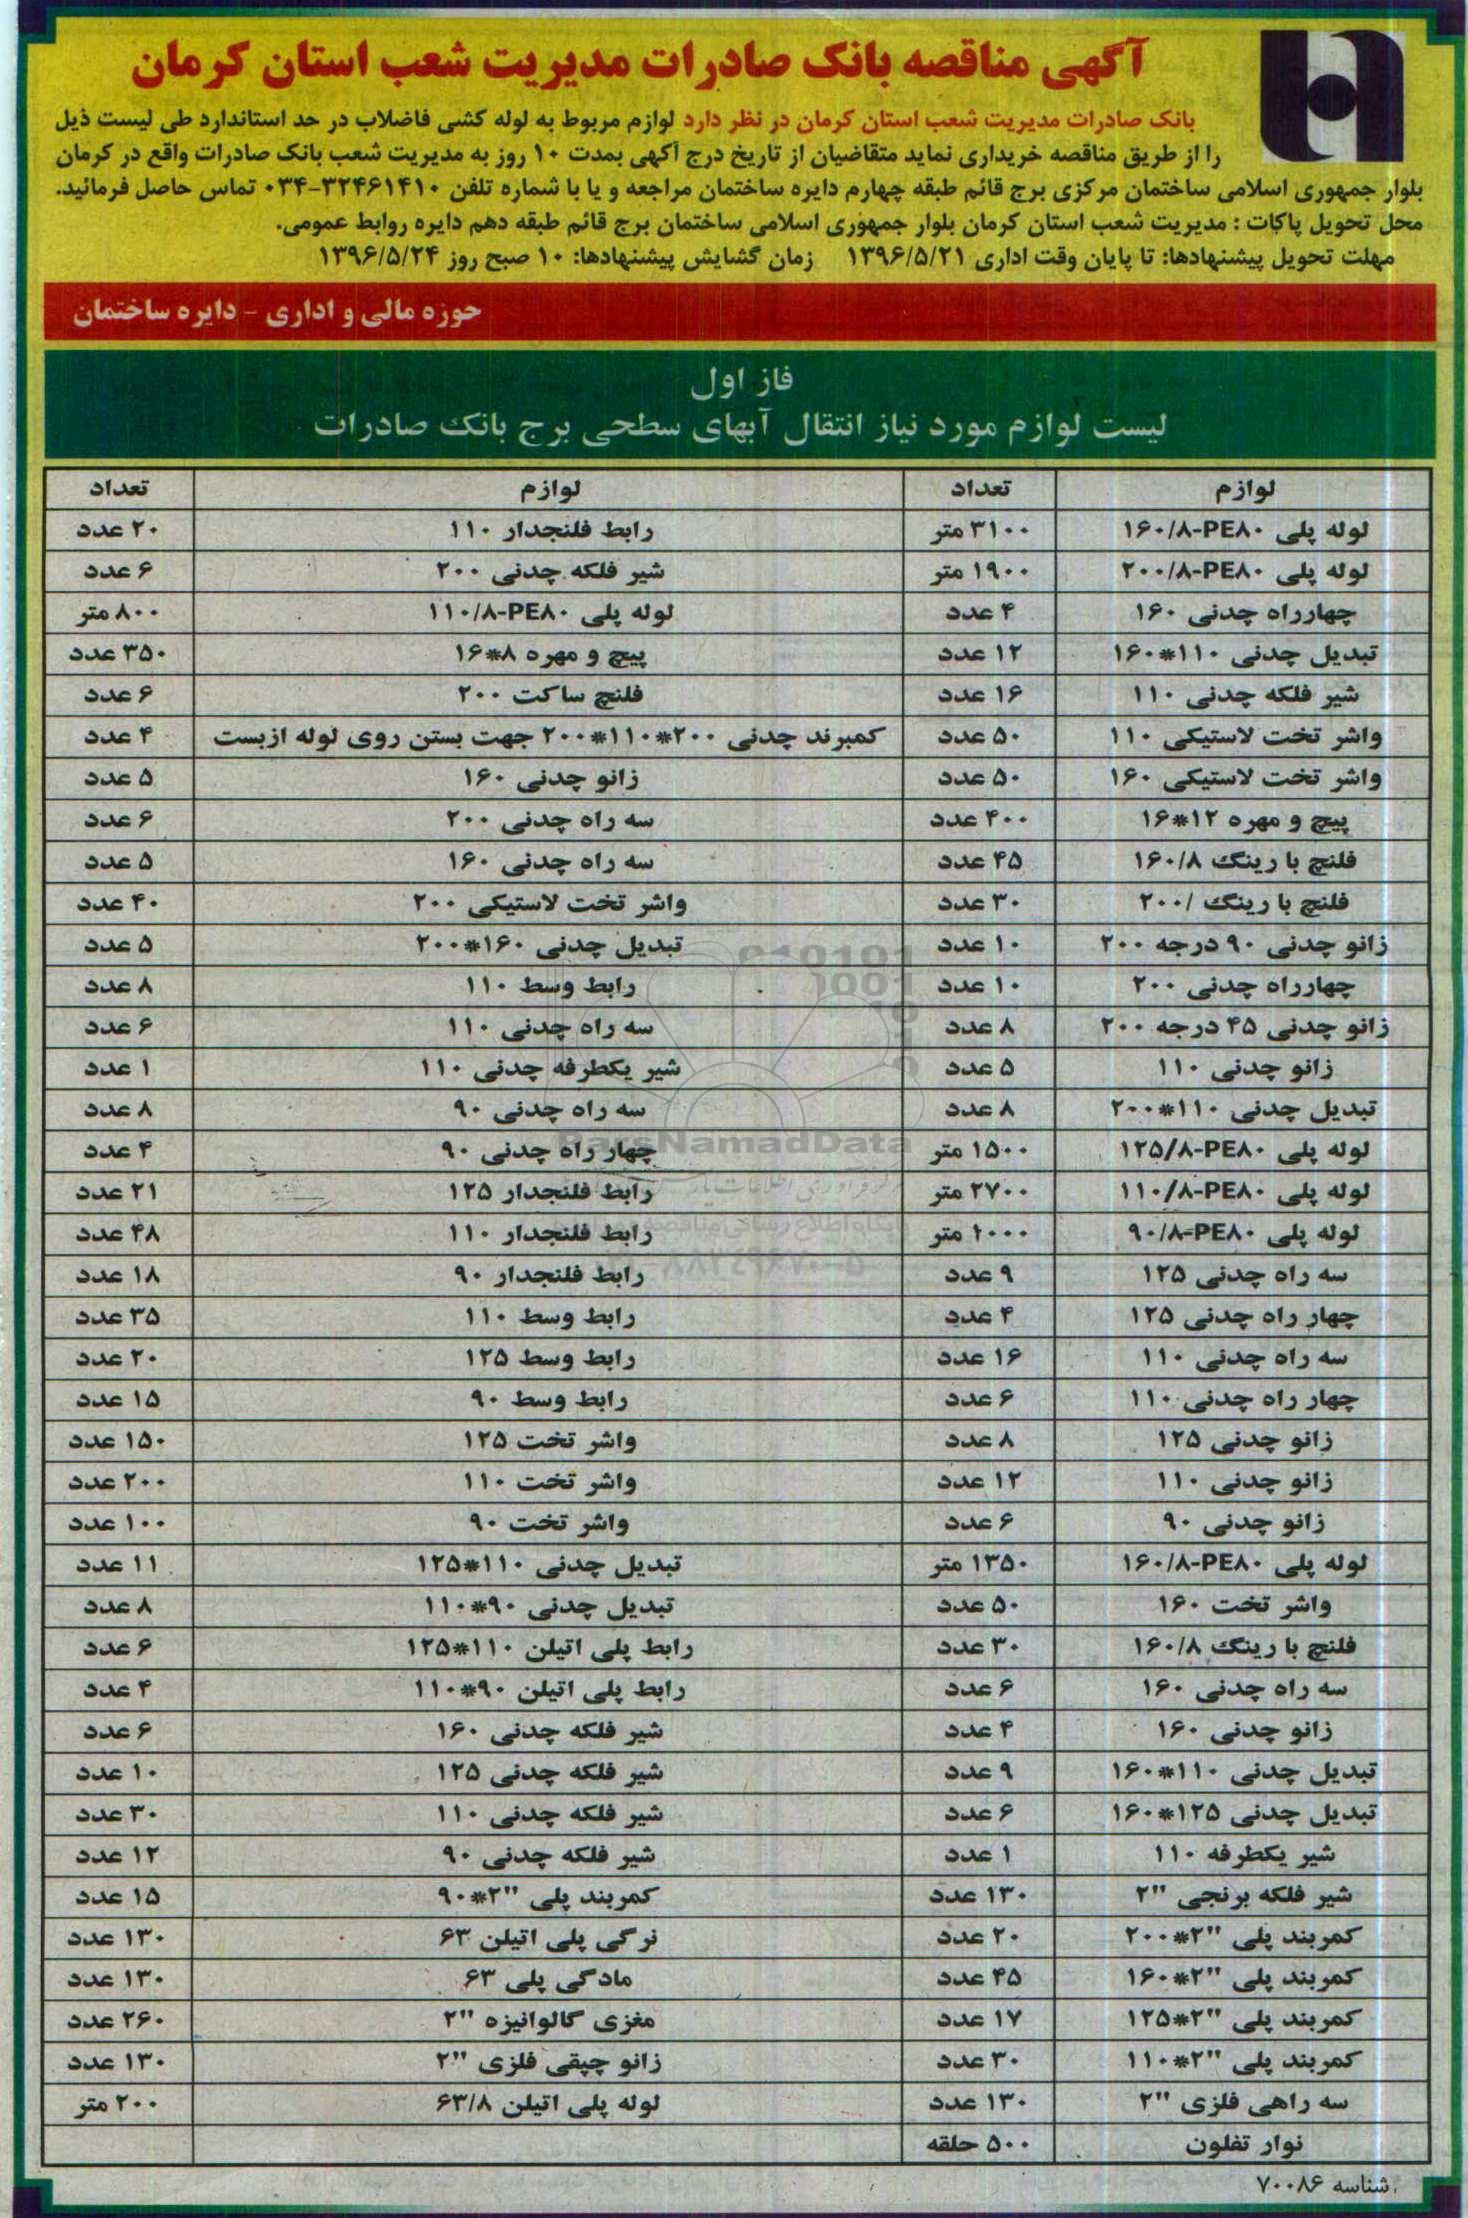 آگهی مناقصه بانک صادرات مدیریت شعب استان کرمان
بانک صادرات مدیریت شعب استان کرمان در نظر دارد لوازم مربوط به لوله کشی فاضلاب در حد استاندارد طی لیست ذیل
را از طریق مناقصه خریداری نماید متقاضیان از تاریخ درج آگهی بمدت ۱۰ روز به مدیریت شعب بانک صادرات واقع در کرمان
بلوار جمهوری اسلامی ساختمان مرکزی برج قائم طبقه چهارم دایره ساختمان مراجعه و یا با شماره تلفن ۳۲۴۶۱۴۱۰-۰۳۴ تماس حاصل فرمائید.
محل تحویل پاکات : مدیریت شعب استان کرمان بلوار جمهوری اسلامی ساختمان برج قائم طبقه دهم دایره روابط عمومی.
مهلت تحویل پیشنهادها: تا پایان وقت اداری ۱۳۹۶/۵/۲۱ زمان گشایش پیشنهادها: ۱۰ صبح روز ۱۳۹۶/۵/۲۴
حوزه مالی و اداری - دایره ساختمان
فاز اول
لیست لوازم مورد نیاز انتقال آبهای سطحی برج بانک صادرات
لوازم تعداد لوازم تعداد
لوله پلی ۱۶۰/۸-PE۸۰ ۳۱۰۰ متر رابط فلنجدار ۱۱۰ ۲۰ عدد
لوله پلی ۲۰۰/۸-PE۸۰ ۱۹۰۰ متر شیر فلکه چدنی ۲۰۰ ۶ عدد
چهارراه چدنی ۱۶۰ ۴ عدد لوله پلی ۱۱۰/۸-PE۸۰ ۸۰۰ متر
تبدیل چدنی ۱۱۰*۱۶۰ ۱۲ عدد پیچ و مهره ۸*۱۶ ۳۵۰ عدد
شیر فلکه چدنی ۱۱۰ ۱۶ عدد فلنچ ساکت ۲۰۰ ۶ عدد
واشر تخت لاستیکی ۱۱۰ ۵۰ عدد کمبرند چدنی ۲۰۰*۱۱۰*۲۰۰ جهت بستن روی لوله ازبست ۴ عدد
واشر تخت لاستیکی ۱۶۰ ۵۰ عدد زانو چدنی ۱۶۰ ۵ عدد
پیچ و مهره ۱۲*۱۶ ۴۰۰ عدد سه راه چدنی ۲۰۰ ۶ عدد
فلنچ با رینگ ۱۶۰/۸ ۴۵ عدد سه راه چدنی ۱۶۰ ۵ عدد
فلنچ با رینگ /۲۰۰ ۳۰ عدد واشر تخت لاستیکی ۲۰۰ ۴۰ عدد
زانو چدنی ۹۰ درجه ۲۰۰ ۱۰ عدد تبدیل چدنی ۱۶۰*۲۰۰ ۵ عدد
چهارراه چدنی ۲۰۰ ۱۰ عدد رابط وسط ۱۱۰ ۸ عدد
زانو چدنی ۴۵ درجه ۲۰۰ ۸ عدد سه راه چدنی ۱۱۰ ۶ عدد
زانو چدنی ۱۱۰ ۵ عدد شیر یکطرفه چدنی ۱۱۰ ۱ عدد
تبدیل چدنی ۱۱۰*۲۰۰ ۸ عدد سه راه چدنی ۹۰ ۸ عدد
لوله پلی ۱۲۵/۸-PE۸۰ ۱۵۰۰ متر چهار راه چدنی ۹۰ ۴ عدد
لوله پلی ۱۱۰/۸-PE۸۰ ۲۷۰۰ متر رابط فلنجدار ۱۲۵ ۲۱ عدد
لوله پلی ۹۰/۸-PE۸۰ ۱۰۰۰ متر رابط فلنجدار ۱۱۰ ۴۸ عدد
سه راه چدنی ۱۲۵ ۹ عدد رابط فلنجدار ۹۰ ۱۸ عدد
چهار راه چدنی ۱۲۵ ۴ عدد رابط وسط ۱۱۰ ۳۵ عدد
سه راه چدنی ۱۱۰ ۱۶ عدد رابط وسط ۱۲۵ ۲۰ عدد
چهار راه چدنی ۱۱۰ ۶ عدد رابط وسط ۹۰ ۱۵ عدد
زانو چدنی ۱۲۵ ۸ عدد واشر تخت ۱۲۵ ۱۵۰ عدد
زانو چدنی ۱۱۰ ۱۲ عدد واشر تخت ۱۱۰ ۲۰۰ عدد
زانو چدنی ۹۰ ۶ عدد واشر تخت ۹۰ ۱۰۰ عدد
لوله پلی ۱۶۰/۸-PE۸۰ ۱۳۵۰ متر تبدیل چدنی ۱۱۰*۱۲۵ ۱۱ عدد
واشر تخت ۱۶۰ ۵۰ عدد تبدیل چدنی ۹۰*۱۱۰ ۸ عدد
فلنچ با رینگ ۱۶۰/۸ ۳۰ عدد رابط پلی اتیلن ۱۱۰*۱۲۵ ۶ عدد
سه راه چدنی ۱۶۰ ۶ عدد رابط پلی اتیلن ۹۰*۱۱۰ ۴ عدد
زانو چدنی ۱۶۰ ۴ عدد شیر فلکه چدنی ۱۶۰ ۶ عدد
تبدیل چدنی ۱۱۰*۱۶۰ ۹ عدد شیر فلکه چدنی ۱۲۵ ۱۰ عدد
تبدیل چدنی ۱۲۵*۱۶۰ ۶ عدد شیر فلکه چدنی ۱۱۰ ۳۰ عدد
شیر یکطرفه ۱۱۰ ۱ عدد شیر فلکه چدنی ۹۰ ۱۲ عدد
شیر فلکه برنجی "۲ ۱۳۰ عدد کمربند پلی "۲*۹۰ ۱۵ عدد
کمربند پلی "۲*۲۰۰ ۲۰ عدد نرگی پلی اتیلن ۶۳ ۱۳۰ عدد
کمربند پلی "۲*۱۶۰ ۴۵ عدد مادگی پلی ۶۳ ۱۳۰ عدد
کمربند پلی "۲*۱۲۵ ۱۷ عدد مغزی گالوانیزه "۲ ۲۶۰ عدد
کمربند پلی "۲*۱۱۰ ۳۰ عدد زانو چپقی فلزی "۲ ۱۳۰ عدد
سه راهی فلزی "۲ ۱۳۰ عدد لوله پلی اتیلن ۶۳/۸ ۲۰۰ متر
نوار تفلون ۵۰۰ حلقه
شناسه ۷۰۰۸۶
ParsNamadData